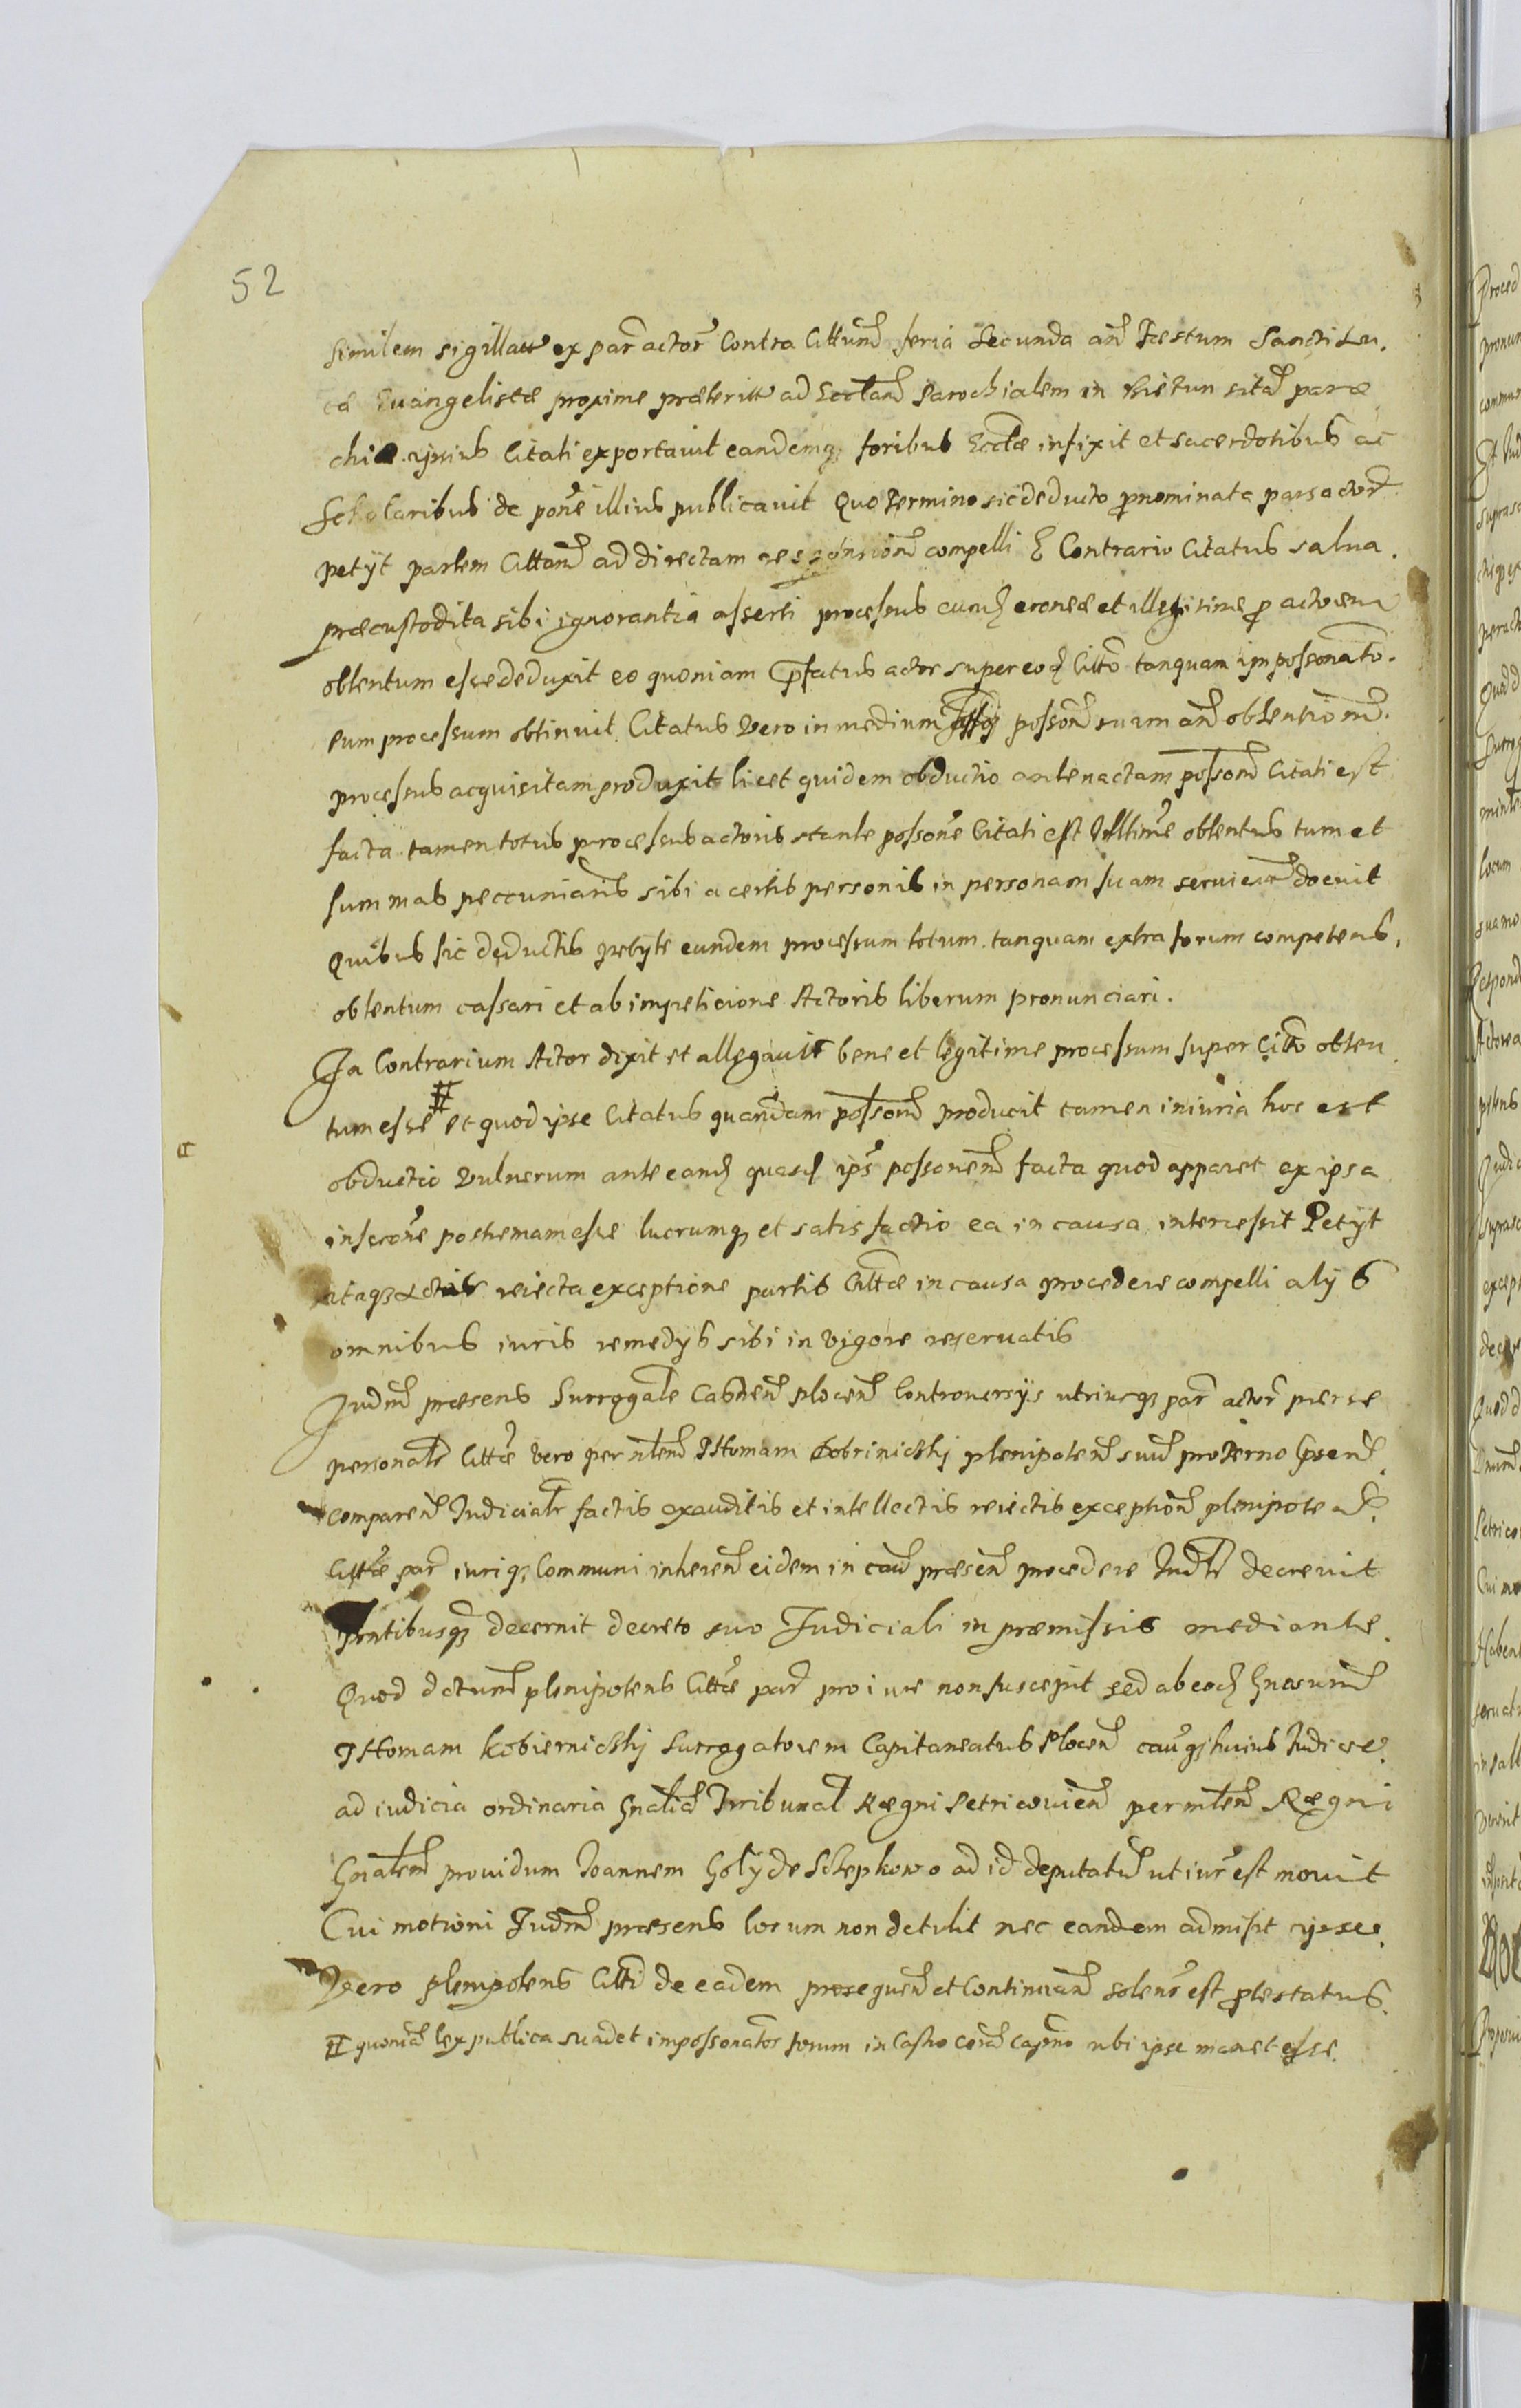 52
similem sigillatt ex par actor Contra Citt̃um feria secunda añ Festum Sancti Lu.
cæ Evangelistæ proxime præteritt ad Eccl̃am Parochialem in sitã paræ
chiæ ipsius Citati exportavit eandemq foribus Eccl̃æ infixit et sacerdotibus ac
Scholaribus de poñe illius publicavit Quo termino sic deducto p̱nominata pars actor̃
petyt partem Citt̃am ad directam compelli E Contrario Citatus salva
præcustodita sibi ignorantia asserti processus eund̃ eroneæ et illegitime p̱ actorem
obtentum esse deduxit eo quoniam p̃fatus actor super eod̃ Citt̃o tanquam impossonato
eum processum obtinuit Citatus Vero in medium possoñe suam añ obtentionẽ
processus acquisitam produxit licet quidem obductio ante nactam possonẽ Citati est
facta tamen totus processus actoris stante possoñe Citati est Ulltimẽ obtentus tum et
summas peccuniarũ sibi a certis personis in personam suam docuit
Quibus sic deductis petyt eundem processum totum tanquam extra forum competens
obtentum cassari et ab impeticione Actoris liberum pronunciari.
In Contrarium Actor dixit et allegavit bene et legitime processum super Citt̃o obten
tum esse # et quod ipse Citatus quandam possonẽ producit tamen iniuria hoc est
obductio vulnerum ante eand̃ ips possonem̃ facta quod apparet ex ipsa
inscroñe postremam esse lucrumq et satisfactio ea in causa intercessit Petyt
itaq reiecta exceptione partis Citt̃æ in causa procedere compelli alys
omnibus iuris remedys sibi in vigore reservatis
Judm̃ præsens Surrogale Cas̃treñ Ploceñ Controversijs utriusq par actor per se
personalr̃ Citt̃æ vero per nblem̃ Thomam Dobrinicky plenipotenm̃ suũ pro Termo p̃señ
compareñ Judicialr̃ factis exauditis et intellectis reiectis exceptioñ plenipoteñ
Citt̃æ par iuriq Communi inhereñ eidem in cauã præseñ procedere Judr̃ decrevit
Pñtibusq decernit decreto suo Judiciali in præmissis mediante
Quod dctum̃ plenipotens Citt̃æ par pro iure non suscepit sed ab eod̃ Gñosum̃
Thomam Kobiernicky Surrogatorem Capitaneatus Ploceñ cauq huius Judicẽ
ad iudicia ordinaria Gñalia Tribunal Regni Petricovień per mlem̃ Regni
Gñalem̃ providum Joannem Goły de Sczepkowo ad id deputatũ ut iurẽ est movit
Cui motioni Judm̃ præsens locum non detulit nec eandem admisit ipse
Vero plenipotens Citt̃i de eadem prosequeñ et Continuañ solenr̃ est p̱testatus
# quoniã lex publica suadet impossonator forum in Castro corã Capneo ubi ipse manet esse